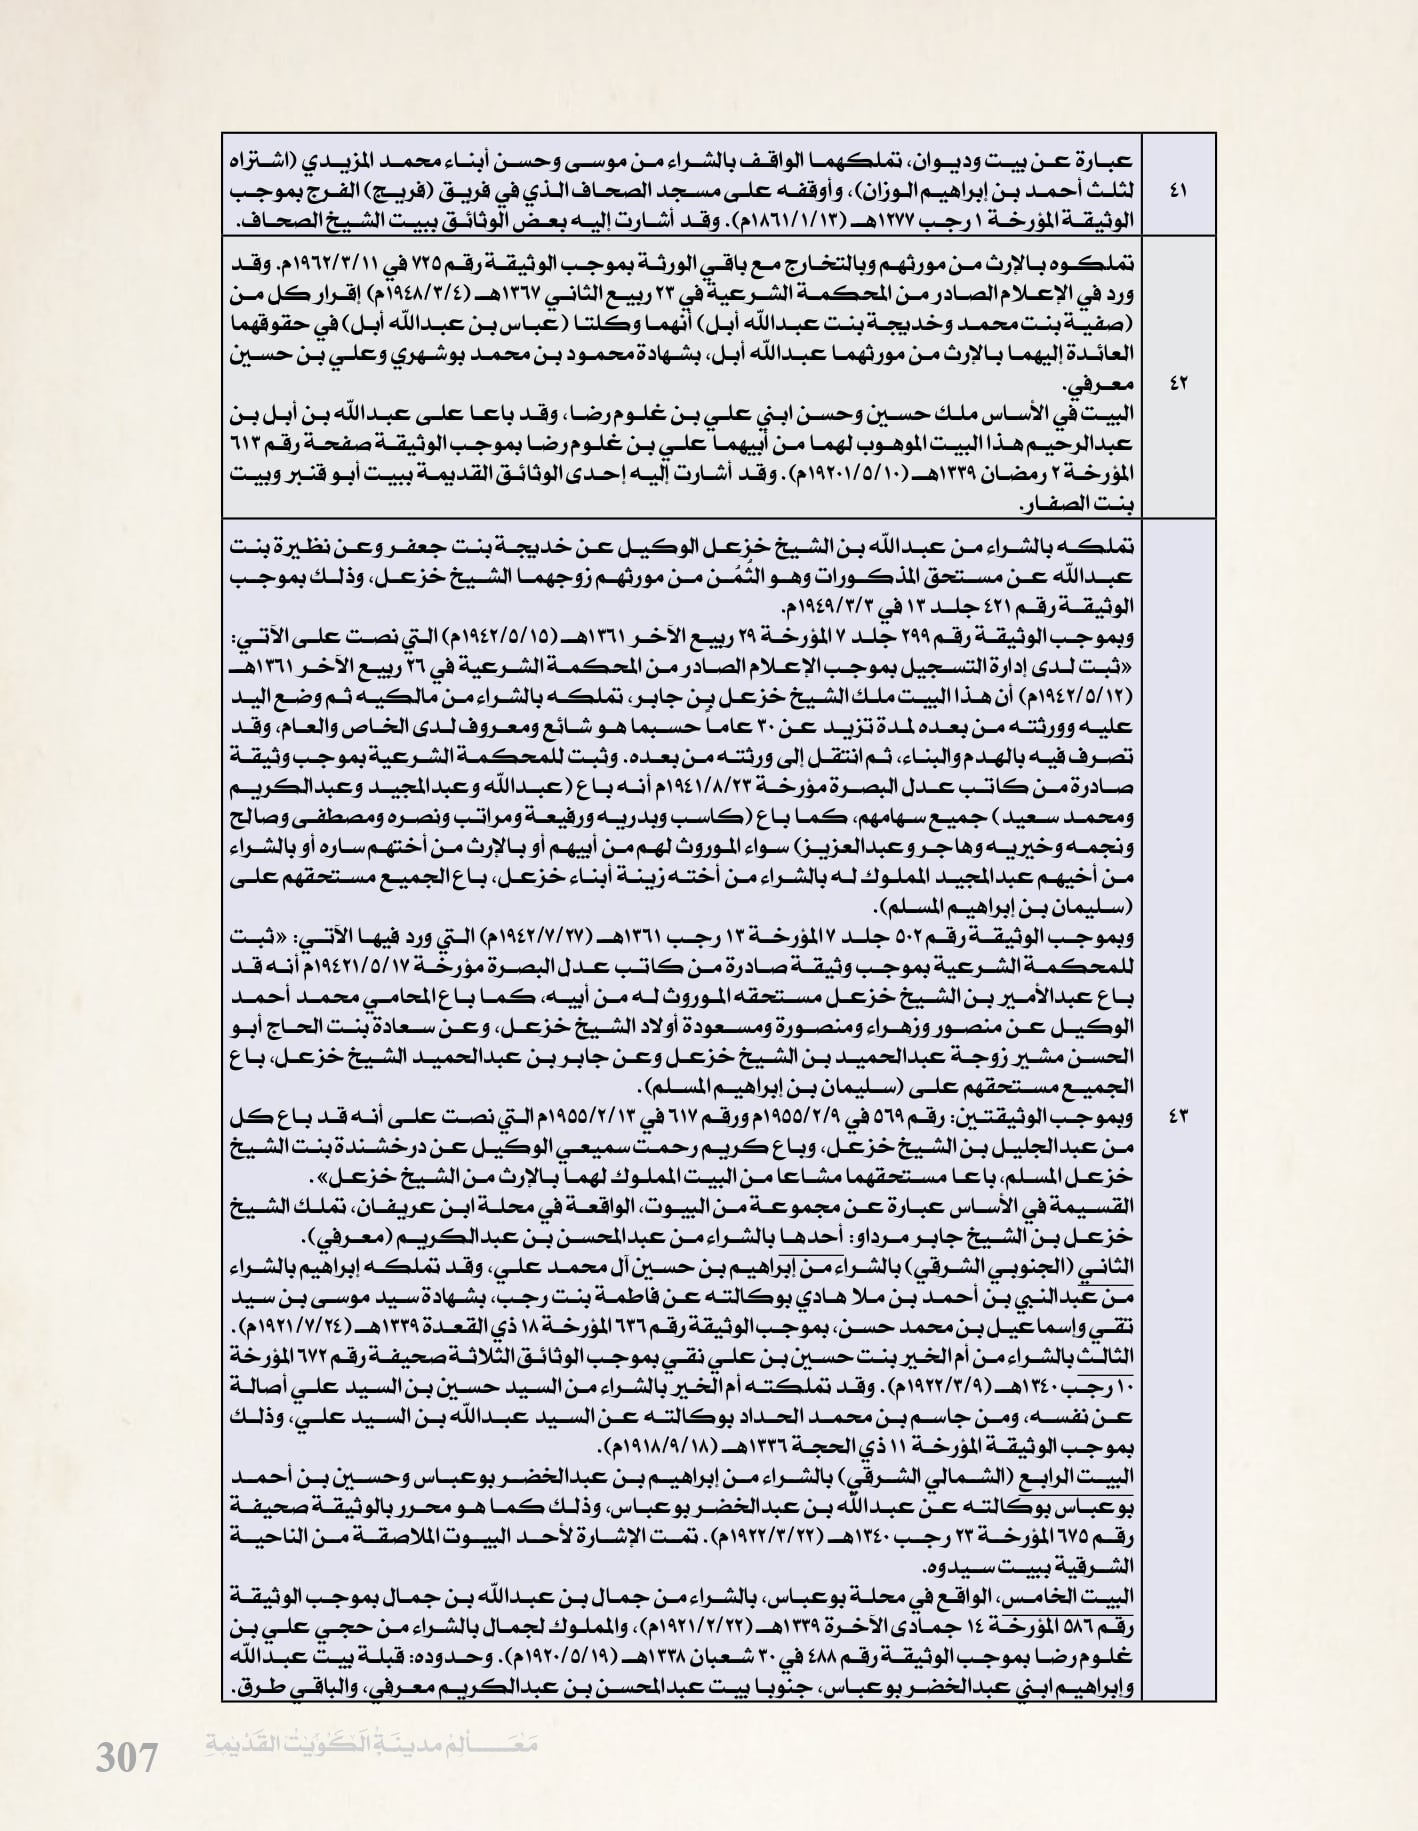 ٤١
عبارة عن بيت وديوان، تملكهما الواقف بالشراء من موسى وحسن أبناء محمد المزيدي (اشتراه
لثلث أحمد بن إبراهيم الوزان)، وأوقفه على مسجد الصحاف الذي في فريق (فريج) الفرج بموجب
الوثيقة المؤرخة ١ رجب ١٢٧٧هـ (١٨٦١/١/١٣م). وقد أشارت إليه بعض الوثائق ببيت الشيخ الصحاف.
٤٢
تملكوه بالإرث من مورثهم وبالتخارج مع باقي الورثة بموجب الوثيقة رقم ٧٢٥ في ١٩٦٢/٣/١١م. وقد
ورد في الإعلام الصادر من المحكمة الشرعية في ٢٣ ربيع الثاني ١٣٦٧هـ (١٩٤٨/٣/٤م) إقرار كل من
(صفية بنت محمد وخديجة بنت عبدالله أبل) أنهما وكلتا (عباس بن عبدالله أبل) في حقوقهما
العائدة إليهما بالإرث من مورثهما عبدالله أبل، بشهادة محمود بن محمد بوشهري وعلي بن حسين
معرفي.
البيت في الأساس ملك حسين وحسن ابني علي بن غلوم رضا، وقد باعا على عبدالله بن أبل بن
عبدالرحيم هذا البيت الموهوب لهما من أبيهما علي بن غلوم رضا بموجب الوثيقة صفحة رقم ٦١٣
المؤرخة ٢ رمضان ١٣٣٩هـ (١٩٢٠١/٥/١٠م). وقد أشارت إليه إحدى الوثائق القديمة ببيت أبو قنبر وبيت
بنت الصفار.
٤٣
تملكه بالشراء من عبدالله بن الشيخ خزعل الوكيل عن خديجة بنت جعفر وعن نظيرة بنت
عبدالله عن مستحق المذكورات وهو الثُمُن من مورثهم زوجهما الشيخ خزعل، وذلك بموجب
الوثيقة رقم ٤٢١ جلد ١٣ في ١٩٤٩/٣/٣م.
وبموجب الوثيقة رقم ٢٩٩ جلد ٧ المؤرخة ٢٩ ربيع الآخر ١٣٦١هـ (١٩٤٢/٥/١٥م) التي نصت على الآتي:
«ثبت لدى إدارة التسجيل بموجب الإعلام الصادر من المحكمة الشرعية في ٢٦ ربيع الآخر ١٣٦١هـ
(١٩٤٢/٥/١٢م) أن هذا البيت ملك الشيخ خزعل بن جابر، تملكه بالشراء من مالكيه ثم وضع اليد
عليه وورثته من بعده لمدة تزيد عن ٣٠ عاماً حسبما هو شائع ومعروف لدى الخاص والعام، وقد
تصرف فيه بالهدم والبناء، ثم انتقل إلى ورثته من بعده. وثبت للمحكمة الشرعية بموجب وثيقة
صادرة من كاتب عدل البصرة مؤرخة ١٩٤١/٨/٢٣م أنه باع (عبدالله وعبدالمجيد وعبدالكريم
ومحمد سعيد) جميع سهامهم، كما باع (كاسب وبدريه ورفيعة ومراتب ونصره ومصطفى وصالح
ونجمه وخيريه وهاجر وعبدالعزيز) سواء الموروث لهم من أبيهم أو بالإرث من أختهم ساره أو بالشراء
من أخيهم عبدالمجيد المملوك له بالشراء من أخته زينة أبناء خزعل، باع الجميع مستحقهم على
(سليمان بن إبراهيم المسلم).
وبموجب الوثيقة رقم ٥٠٢ جلد ٧ المؤرخة ١٣ رجب ١٣٦١هـ (١٩٤٢/٧/٢٧م) التي ورد فيها الآتي: «ثبت
للمحكمة الشرعية بموجب وثيقة صادرة من كاتب عدل البصرة مؤرخة ١٩٤٢١/٥/١٧م أنه قد
باع عبدالأمير بن الشيخ خزعل مستحقه الموروث له من أبيه، كما باع المحامي محمد أحمد
الوكيل عن منصور وزهراء ومنصورة ومسعودة أولاد الشيخ خزعل، وعن سعادة بنت الحاج أبو
الحسن مشير زوجة عبدالحميد بن الشيخ خزعل وعن جابر بن عبدالحميد الشيخ خزعل، باع
الجميع مستحقهم على (سليمان بن إبراهيم المسلم).
وبموجب الوثيقتين: رقم ٥٦٩ في ١٩٥٥/٢/٩م ورقم ٦١٧ في ١٩٥٥/٢/١٣م التي نصت على أنه قد باع كل
من عبدالجليل بن الشيخ خزعل، وباع كريم رحمت سميعي الوكيل عن درخشندة بنت الشيخ
خزعل المسلم، باعا مستحقهما مشاعا من البيت المملوك لهما بالإرث من الشيخ خزعل».
القسيمة في الأساس عبارة عن مجموعة من البيوت، الواقعة في محلة ابن عريفان، تملك الشيخ
خزعل بن الشيخ جابر مرداو: أحدها بالشراء من عبدالمحسن بن عبدالكريم (معرفي).
الثاني (الجنوبي الشرقي) بالشراء من إبراهيم بن حسين آل محمد علي، وقد تملكه إبراهيم بالشراء
من عبدالنبي بن أحمد بن ملا هادي بوكالته عن فاطمة بنت رجب، بشهادة سيد موسى بن سيد
تقي وإسماعيل بن محمد حسن، بموجب الوثيقة رقم ٦٣٦ المؤرخة ١٨ ذي القعدة ١٣٣٩هـ (١٩٢١/٧/٢٤م).
الثالث بالشراء من أم الخير بنت حسين بن علي نقي بموجب الوثائق الثلاثة صحيفة رقم ٦٧٢ المؤرخة
١٠ رجب ١٣٤٠هـ (١٩٢٢/٣/٩م). وقد تملكته أم الخير بالشراء من السيد حسين بن السيد علي أصالة
عن نفسه، ومن جاسم بن محمد الحداد بوكالته عن السيد عبدالله بن السيد علي، وذلك
بموجب الوثيقة المؤرخة ١١ ذي الحجة ١٣٣٦هـ (١٩١٨/٩/١٨م).
البيت الرابع (الشمالي الشرقي) بالشراء من إبراهيم بن عبدالخضر بوعباس وحسين بن أحمد
بوعباس بوكالته عن عبدالله بن عبدالخضر بوعباس، وذلك كما هو محرر بالوثيقة صحيفة
رقم ٦٧٥ المؤرخة ٢٣ رجب ١٣٤٠هـ (١٩٢٢/٣/٢٢م). تمت الإشارة لأحد البيوت الملاصقة من الناحية
الشرقية ببيت سيدوه.
البيت الخامس، الواقع في محلة بوعباس، بالشراء من جمال بن عبدالله بن جمال بموجب الوثيقة
رقم ٥٨٦ المؤرخة ١٤ جمادى الآخرة ١٣٣٩هـ (١٩٢١/٢/٢٢م)، والمملوك لجمال بالشراء من حجي علي بن
غلوم رضا بموجب الوثيقة رقم ٤٨٨ في ٣٠ شعبان ١٣٣٨هـ (١٩٢٠/٥/١٩م). وحدوده: قبلة بيت عبدالله
وإبراهيم ابني عبدالخضر بوعباس، جنوبا بيت عبدالمحسن بن عبدالكريم معرفي، والباقي طرق.
مَعَالِم مدينَة الكُوَيْت القَدْيمةِ
307